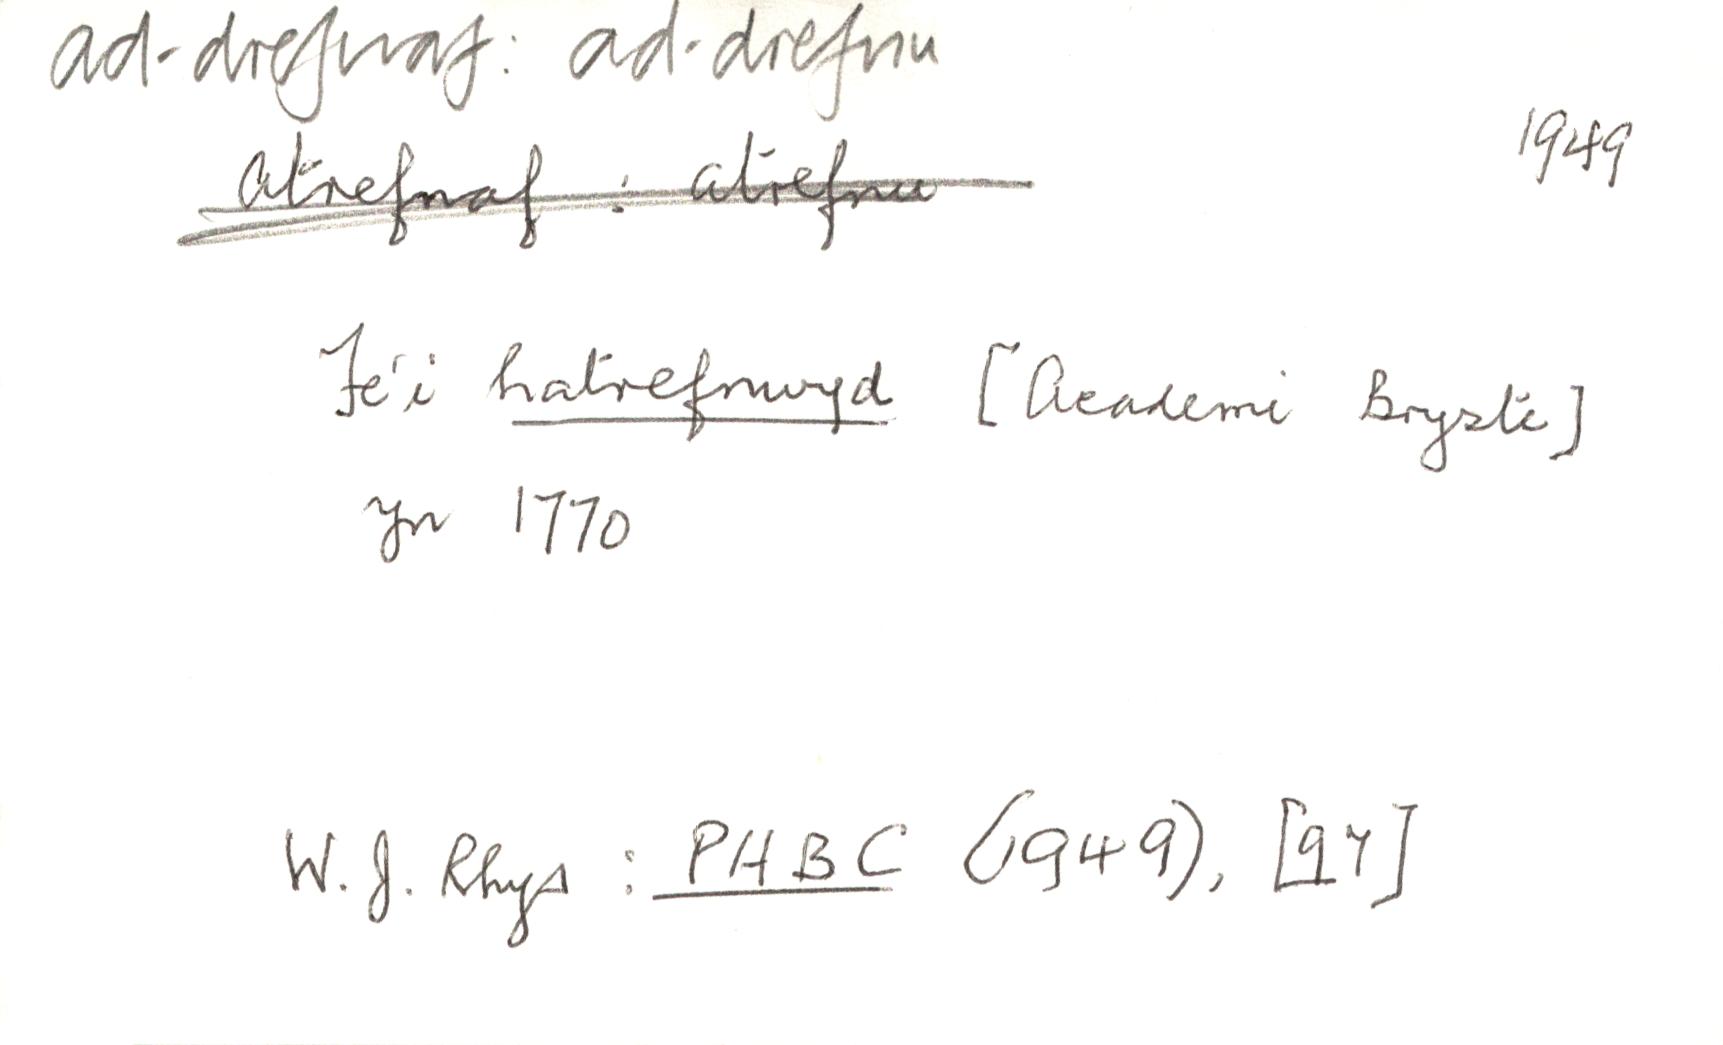 ad-drefnaf: ad-drefnu
1949
atrefnaf : atrefnu
Fe'i hatrefnwyd [Academi Bryste]
yn 1770
W. J. Rhys : PHBC (1949), [97]